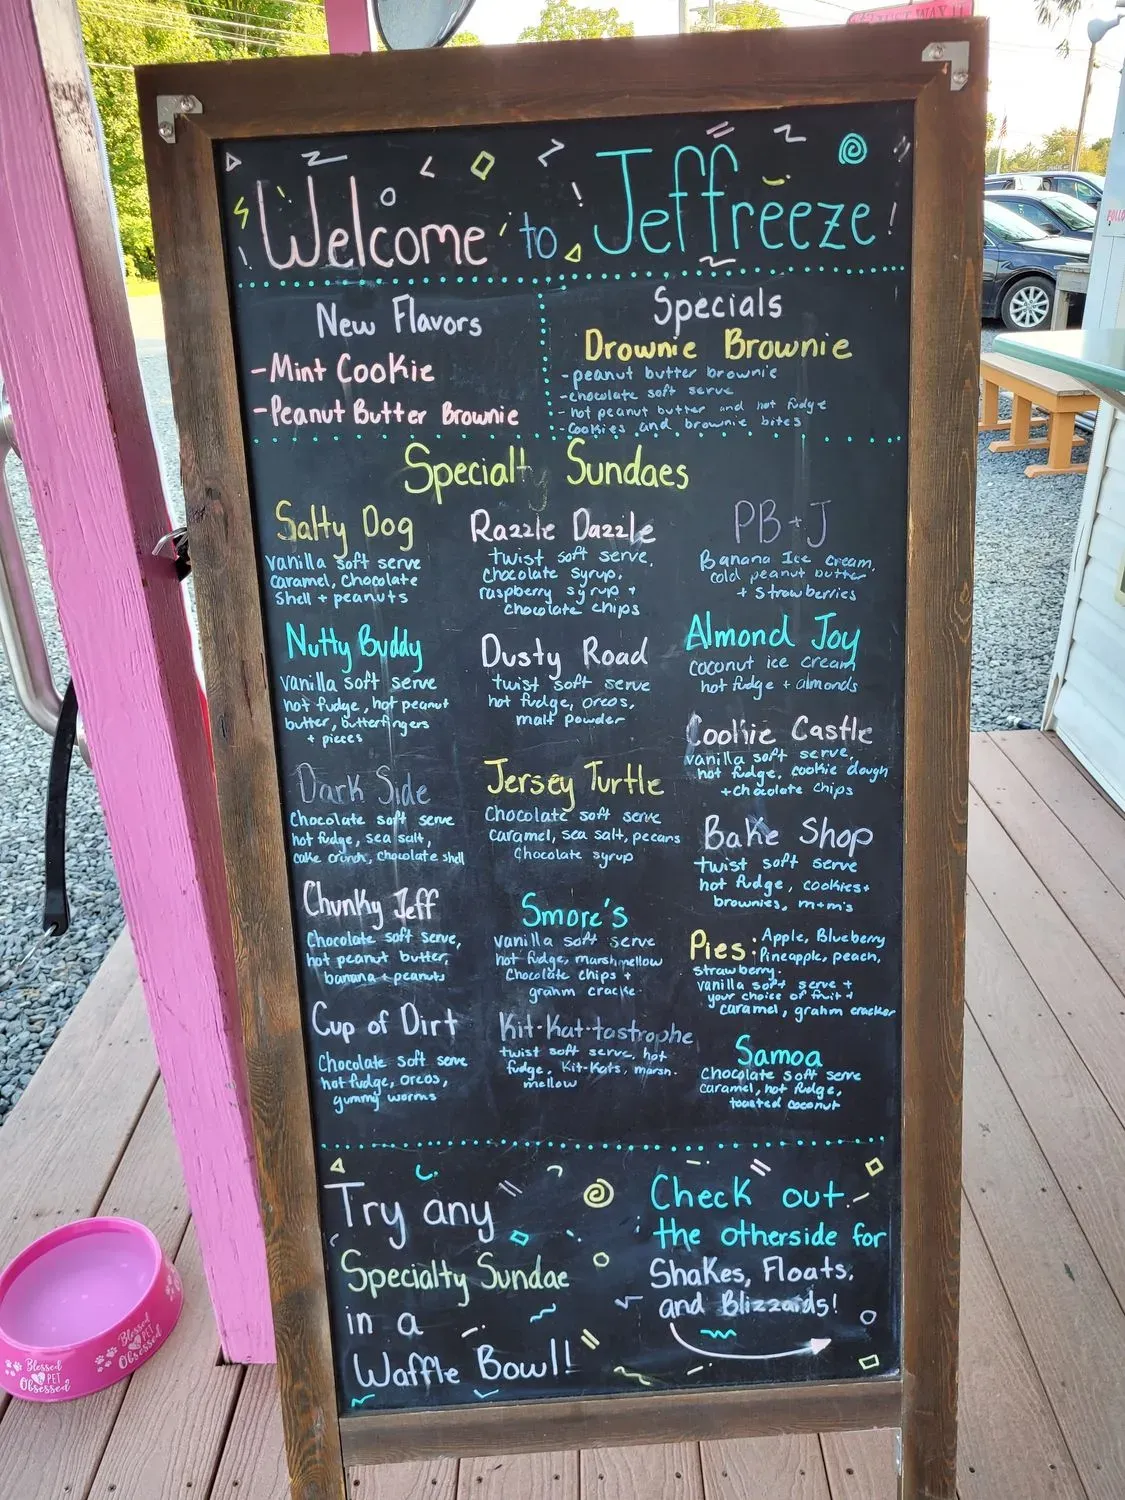 Welcome to Jeffreeze
New Flavors
-Mint Cookie
-Peanut Butter Brownie
Specials
Drownie Brownie
-peanut butter brownie
-chocolate soft serve
-hot peanut butter and hot fudge
-cookies and brownie bites
Specialty Sundaes
Salty Dog
vanilla soft serve
caramel, chocolate
shell + peanuts
Nutty Buddy
vanilla soft serve
hot fudge, hot peanut
butter, butterfingers
+ pieces
Dark Side
Chocolate soft serve
hot fudge, sea salt,
cake crunch, chocolate shell
Chunky Jeff
Chocolate soft serve,
hot peanut butter,
banana + peanuts
Cup of Dirt
Chocolate soft serve
hot fudge, oreos,
gummy worms
Razzle Dazzle
twist soft serve,
Chocolate syrup,
raspberry syrup +
chocolate chips
Dusty Road
twist soft serve
hot fudge, oreos,
malt powder
Jersey Turtle
Chocolate soft serve
caramel, sea salt, pecans
Chocolate syrup
Smore's
vanilla soft serve
hot fudge, marshmellow
Chocolate chips +
grahm cracke
Kit-Kat-tastrophe
twist soft serve, hot
fudge, Kit-Kats, marsh-
mellow
PB+J
Banana Ice Cream,
cold peanut butter
+ strawberries
Almond Joy
coconut ice cream
hot fudge + almonds
Cookie Castle
vanilla soft serve,
hot fudge, cookie dough
+chocolate chips
Bake Shop
twist soft serve
hot fudge, cookies+
brownies, m+m's
Pies: Apple, Blueberry
Pineapple, peach,
strawberry.
vanilla soft serve +
your choice of fruit +
caramel, grahm cracker
Samoa
Chocolate soft serve
caramel, hot fudge,
toasted coconut
Try any
Specialty Sundae
in a
Waffle Bowl!
Check out
the otherside for
Shakes, Floats,
and Blizzards!
Blessed
& PET
Obsessed
Blessed
& PET
Obsessed